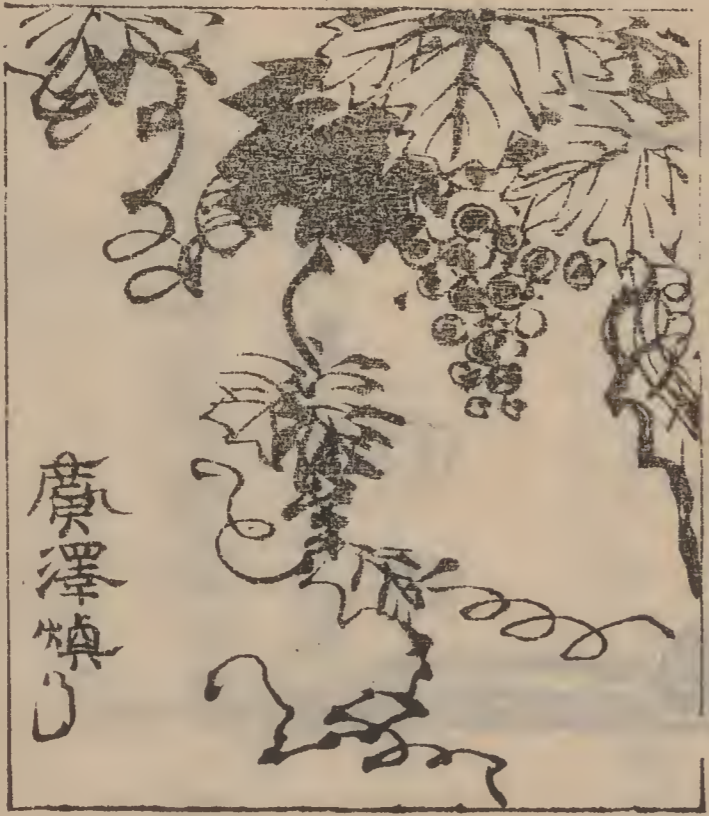 廣澤慎